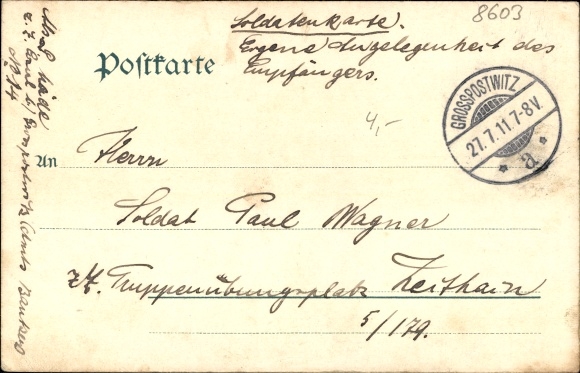 8603
Soldatenkarte.
Eigene Angelegenheit des
Empfängers.
Postkarte
4,-
GROSSPOSTWITZ
27.7.11.7-8V.
* a *
An
Herrn
Soldat Paul Wagner
z.Z. Truppenübungsplatz Zeithain
5/179.
z. Z.
Grosspostwitz (Amts Bautzen)